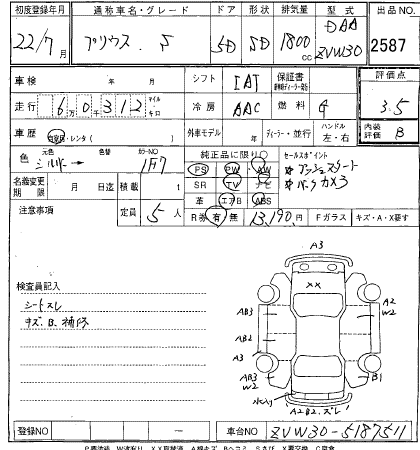 初度登録年月 通称車名・グレード ドア 形状 排気量 型式 出品NO.
22/7月 プリウス S 5D 5D 1800cc DAA ZVW30 2587
車検 年 月 シフト IAT 保証書 評価点
走行 6万0312 マイル キロ 冷房 AAC 燃料 3.5
車歴 自家用・レンタ( ) 外車モデル 年 ディーラー・並行 ハンドル 左・右 内装評価 B
色 元色 シルバー 色替 カラーNO 1F7 純正品に限り○ セールスポイント
PS PW AW プッシュスタート
名義変更期限 月 日迄 積載 t SR TV ナビ バックカメラ
革 エアB ABS
注意事項 定員 5人 R券 有 無 13,190円 Fガラス キズ・A・X要す
A3
検査員記入 XX
シートスレ AB3 A2 W2
キズ、B、補修 AB2
A3
AB3 W2 B1
A2B2、ズレ
登録NO 車台NO ZVW30-5187511